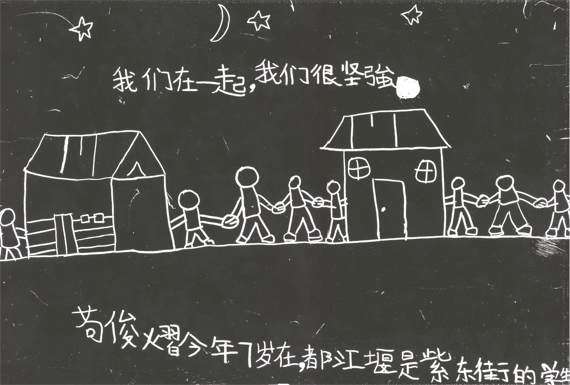 我们在一起,我们很坚強
苟俊熠今年7岁在,都江堰是紫东街的学生